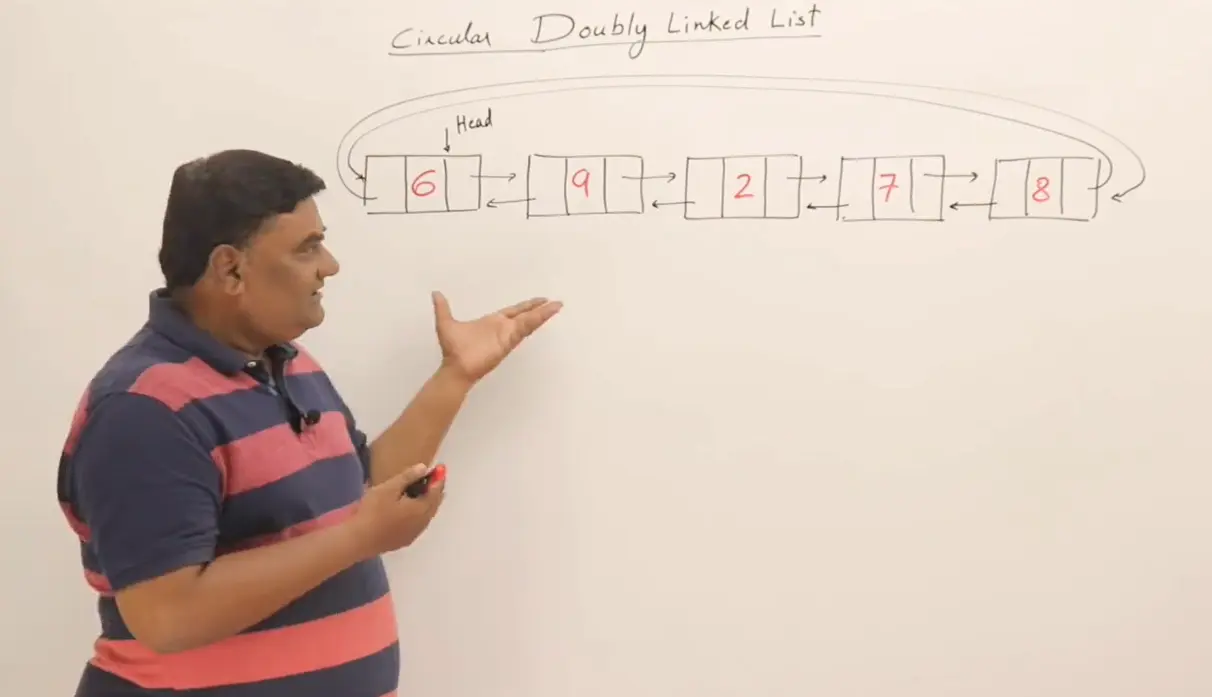 Circular Doubly Linked List
Head
6 9 2 7 8